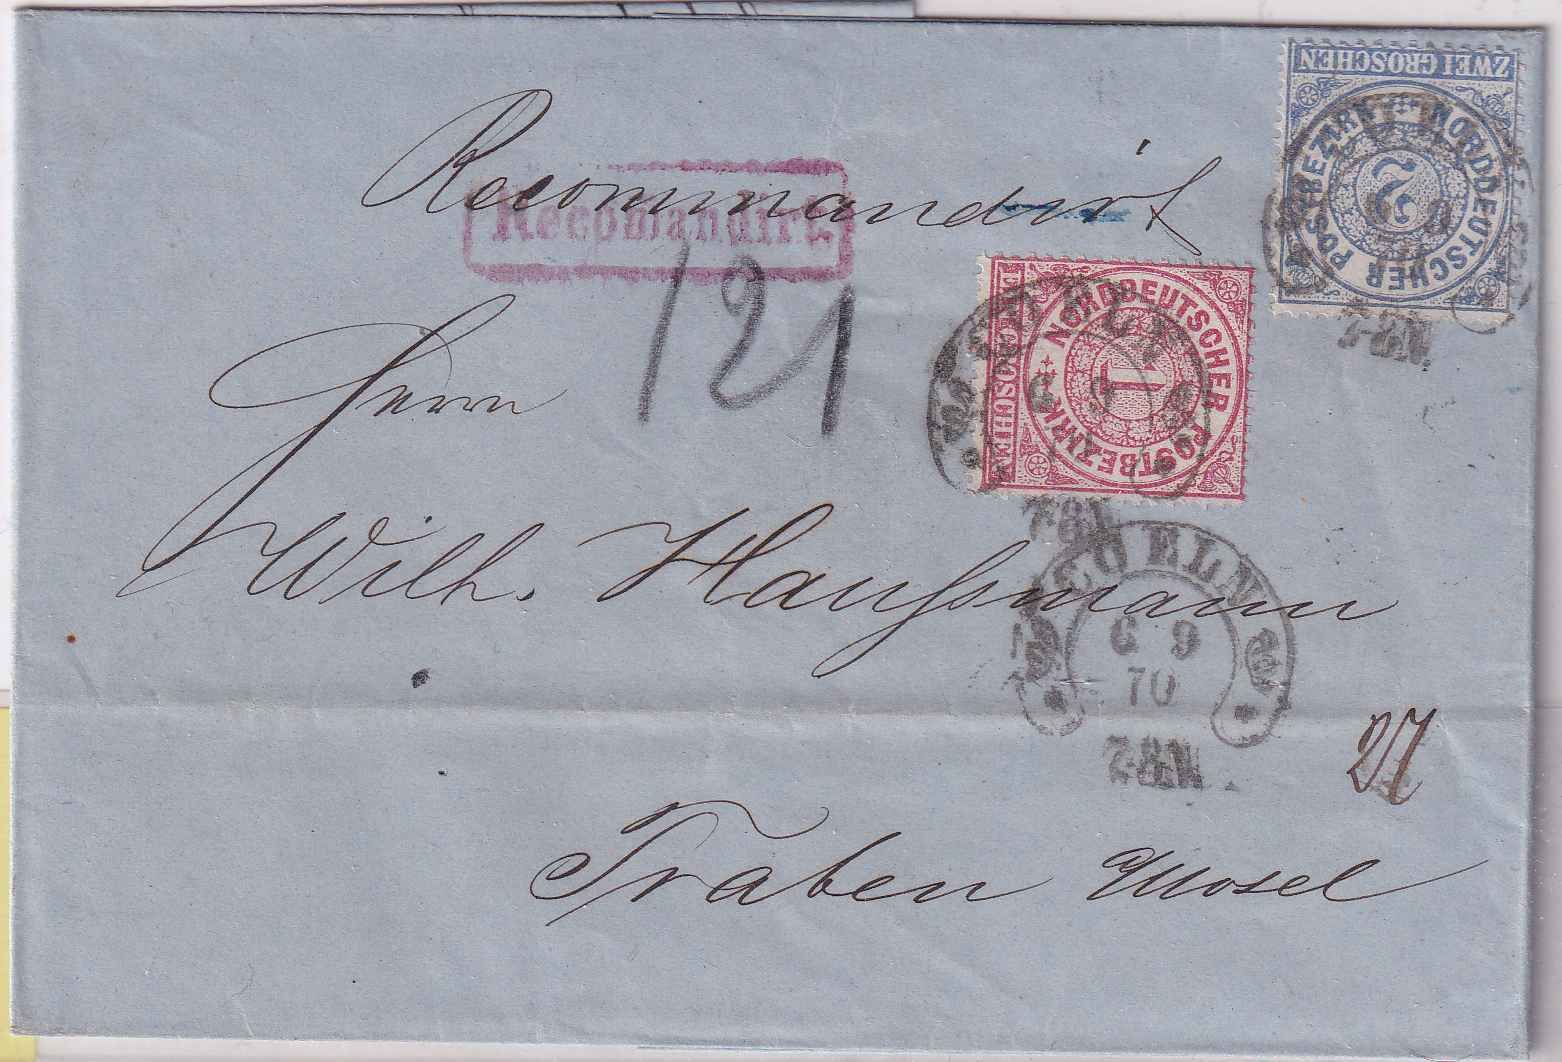 ZWEI GROSCHEN
NORDDEUTSCHER POSTBEZIRK
2
Recommandirt
Recomandirt.
121
NORDDEUTSCHER POSTBEZIRK
1
7-8N
Herrn
Wilh. Haußmann
COELN
6 9
70
7-8N
27
Traben Mosel